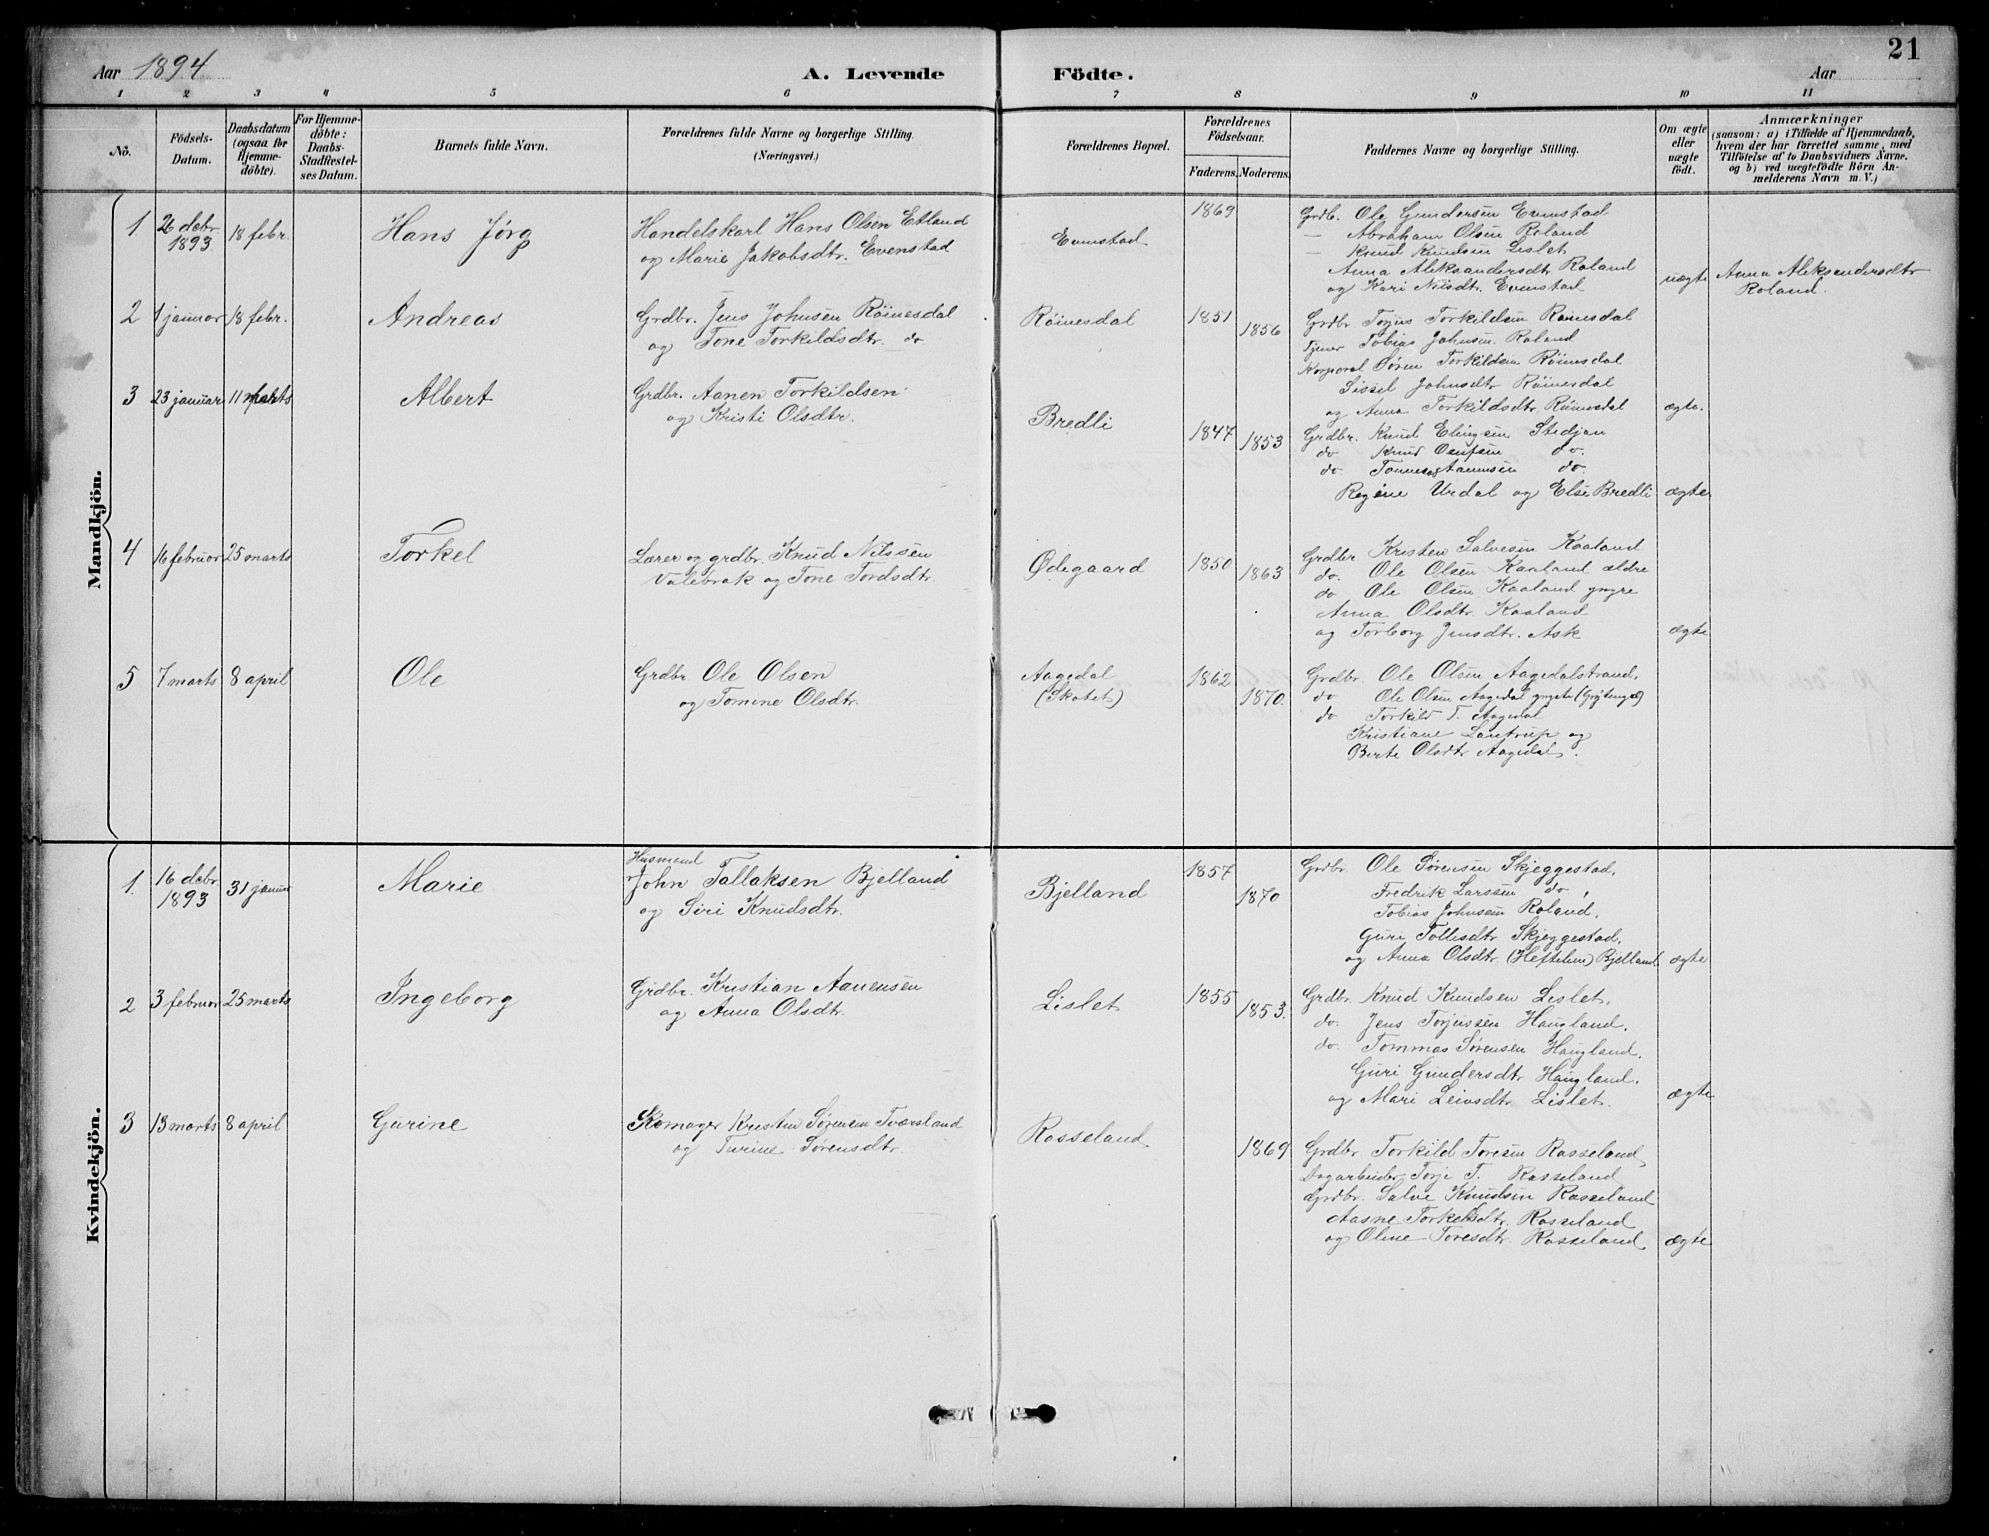 21
Aar 1894
A. Levende Födte.
Aar
1 2 3 4 5 6 7 8 9 10 11
Nö.
Födsels-Datum.
Daabsdatum (ogsaa for Hjemme-döbte).
For Hjemme-döbte: Daabs-Stadfæstel-ses Datum.
Barnets fulde Navn.
Forældrenes fulde Navne og borgerlige Stilling.
(Næringsvei.)
Forældrenes Bopæl.
Forældrenes Födselsaar.
Faderens. Moderens.
Faddernes Navne og borgerlige Stilling.
Om ægte eller uægte födt.
Anmærkninger
(saasom: a) i Tilfælde af Hjemmedaab, hvem der har forrettet samme, med Tilföielse af to Daabsvidners Navne, og b) ved uægtefödte Börn Anmelderens Navn m. V.)
Mandkjön.
1. 26 decbr 1893. 18 febr. Hans Jørg
Handelskarl Hans Olsen Etland
og Marie Jakobsdtr. Evenstad
Evenstad
1869
Grdb. Ole Gundersen Evenstad
— Abraham Olsen Roland
— Knud Knudsen Lislet
Anna Aleksandersdtr Roland
og Kari Nilsdtr. Evenstad
uægte
Anna Aleksandersdtr
Roland.
2 1 januar 18 febr. Andreas
Grdbr. Jens Johnsen Röinesdal
og Tone Torkildsdtr. do
Röinesdal 1851 1856
Grdbr Torjus Torkildsen Röinesdal
Tjener Tobias Johnsen Roland
Korporal Søren Torkildsen Röinesdal
Sissel Johnsdtr Röinesdal
og Anna Torkildsdtr. Röinesdal ægte.
3 23 januar 11 marts Albert
Grdbr. Aanen Torkildsen
og Kristi Olsdtr.
Bredli 1847 1853
Grdbr. Knud Elingsen Stedjan
do Knud do.
do. do.
Regine Urdal og Else Bredli ægte
4 16 februar 25 marts Torkel
Lærer og grdbr. Knud Nilssen
Valebrok og Tone Tordsdtr.
Ødegaard 1850 1863
Grdbr Kristen Salvesen Kaaland
do. Ole Olsen Kaaland ældre
do Ole Olsen Kaaland yngre
Anna Olsdtr. Kaaland
og Torborg Jensdtr. Ask ægte
5 7 marts 8 april Ole
Grdbr Ole Olsen
og Tomine Olsdtr.
Aagedal
(Skotet)
1862 1870.
Grdbr. Ole Olsen Aagedalstrand.
do Ole Olsen Aagedal yngste
do Torkild T. Aagedal
Kristiane Lantrup og
Berte Olsdtr Aagedal.
Kvindekjön.
1. 16 decbr 1893 31 januar Marie
Husmand
John Tallaksen Bjelland
og Siri Knudsdtr.
Bjelland 1857 1870
Grdbr. Ole Sørensen Skjeggestad,
Fredrik Larssen do,
Tobias Johnsen Roland,
Guri Tollesdtr. Skjeggestad,
og Anna Olsdtr. (Heftelun) Bjelland ægte
2 3 februar 25 marts Ingeborg
Grdbr. Kristian Aanensen
og Anna Olsdtr.
Lislet 1855 1853.
Grdbr. Knud Knudsen Lislet.
do. Jens Torjussen Haugland.
do. Tommas Sørensen Haugland.
Guri Gundersdtr. Haugland.
og Mari Leivsdtr. Lislet. ægte
3 13 marts 8 april Gurine
Skomager Kristen Sørensen Tveersland
og Turine Sørensdtr.
Rosseland 1869
Grdbr. Torkild Toresen Rosseland
Dagarbeider Torje T. Rosseland
Grdbr. Salve Knudsen Rosseland
Aasne Torkelsdtr. Rosseland
og Oline Toresdtr. Rosseland ægte